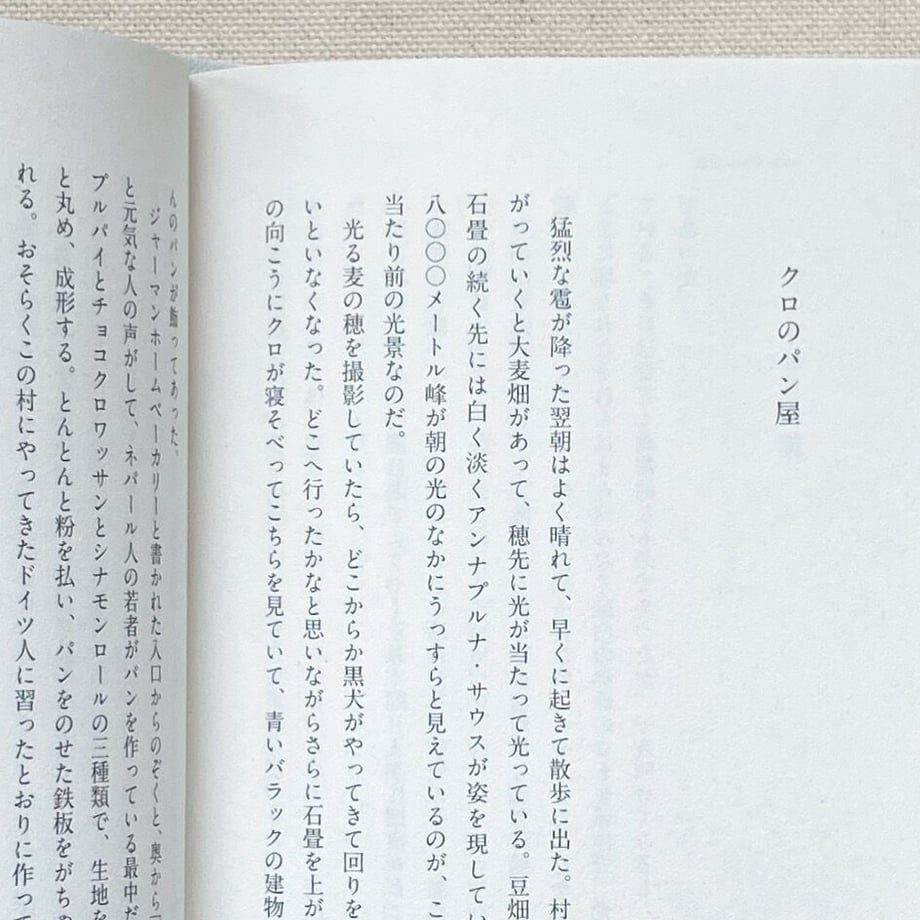 クロのパン屋
猛烈な雹が降った翌朝はよく晴れて、早くに起きて散歩に出た。村
がっていくと大麦畑があって、穂先に光が当たって光っている。豆畑
石畳の続く先には白く淡くアンナプルナ・サウスが姿を現してい
八〇〇〇メートル峰が朝の光のなかにうっすらと見えているのが、こ
当たり前の光景なのだ。
光る麦の穂を撮影していたら、どこからか黒犬がやってきて回りを
いといなくなった。どこへ行ったかなと思いながらさらに石畳を上が
の向こうにクロが寝そべってこちらを見ていて、青いバラックの建物
んのパンが飾ってあった。
ジャーマンホームベーカリーと書かれた入口からのぞくと、奥から「
と元気な人の声がして、ネパール人の若者がパンを作っている最中だ
プルパイとチョコクロワッサンとシナモンロールの三種類で、生地を
と丸め、成形する。とんとんと粉を払い、パンをのせた鉄板をがちゃ
れる。おそらくこの村にやってきたドイツ人に習ったとおりに作って